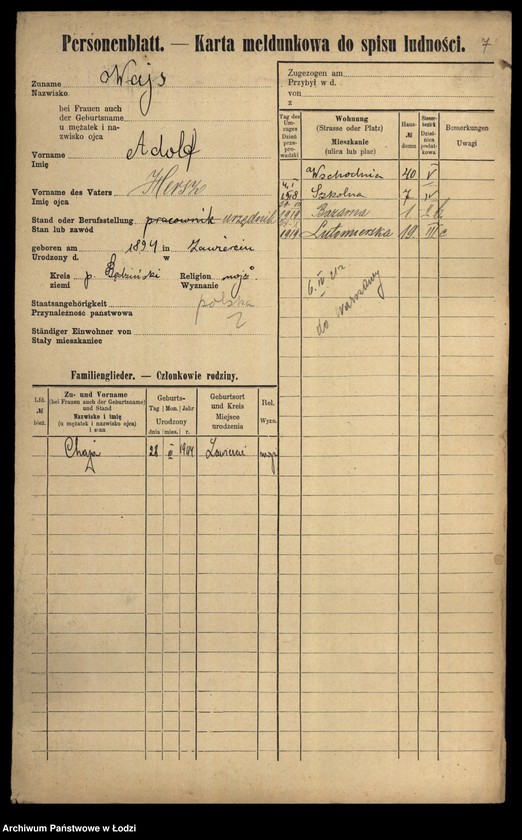 Personenblatt. — Karta meldunkowa do spisu ludności.
7
Zuname
Nazwisko
Wajs
bei Frauen auch
der Geburtsname
u mężatek i na-
zwisko ojca
Vorname
Imię
Adolf
Vorname des Vaters
Imię ojca
Hersz
Stand oder Berufsstellung
Stan lub zawód
pracownik urzędnik
geboren am 1894 in Zawierciu
Urodzony d. w
Kreis p. Będziński Religion mojż
ziemi Wyznanie
Staatsangehörigkeit polska
Przynależność państwowa
Ständiger Einwohner von
Stały mieszkaniec
Zugezogen am
Przybył w d.
von
z
Tag des Um-zuges Dzień prze-prowadzki
Wohnung
(Strasse oder Platz)
Mieszkanie
(ulica lub plac)
Haus-
№
domu
Steuer-bezirk Dzielnica podatkowa
Bemerkungen
Uwagi
Wschodnia 40 V
Szkolna 7 IV
1919 Bazarowa 1
1919 Lutomierska 19 III c
do Warszawy
Familienglieder. — Członkowie rodziny.
Lfd.
№
bież.
Zu- und Vorname
(bei Frauen auch der Geburtsname)
und Stand
Nazwisko i imię
(u mężatek i nazwisko ojca)
i stan
Geburts-
Tag | Mon. | Jahr
Urodzony
dnia | mies. | r.
Geburtsort
und Kreis
Miejsce
urodzenia
Rel.
Wyzn.
Chaja 28 1904 Zawiercie mojż
Archiwum Państwowe w Łodzi